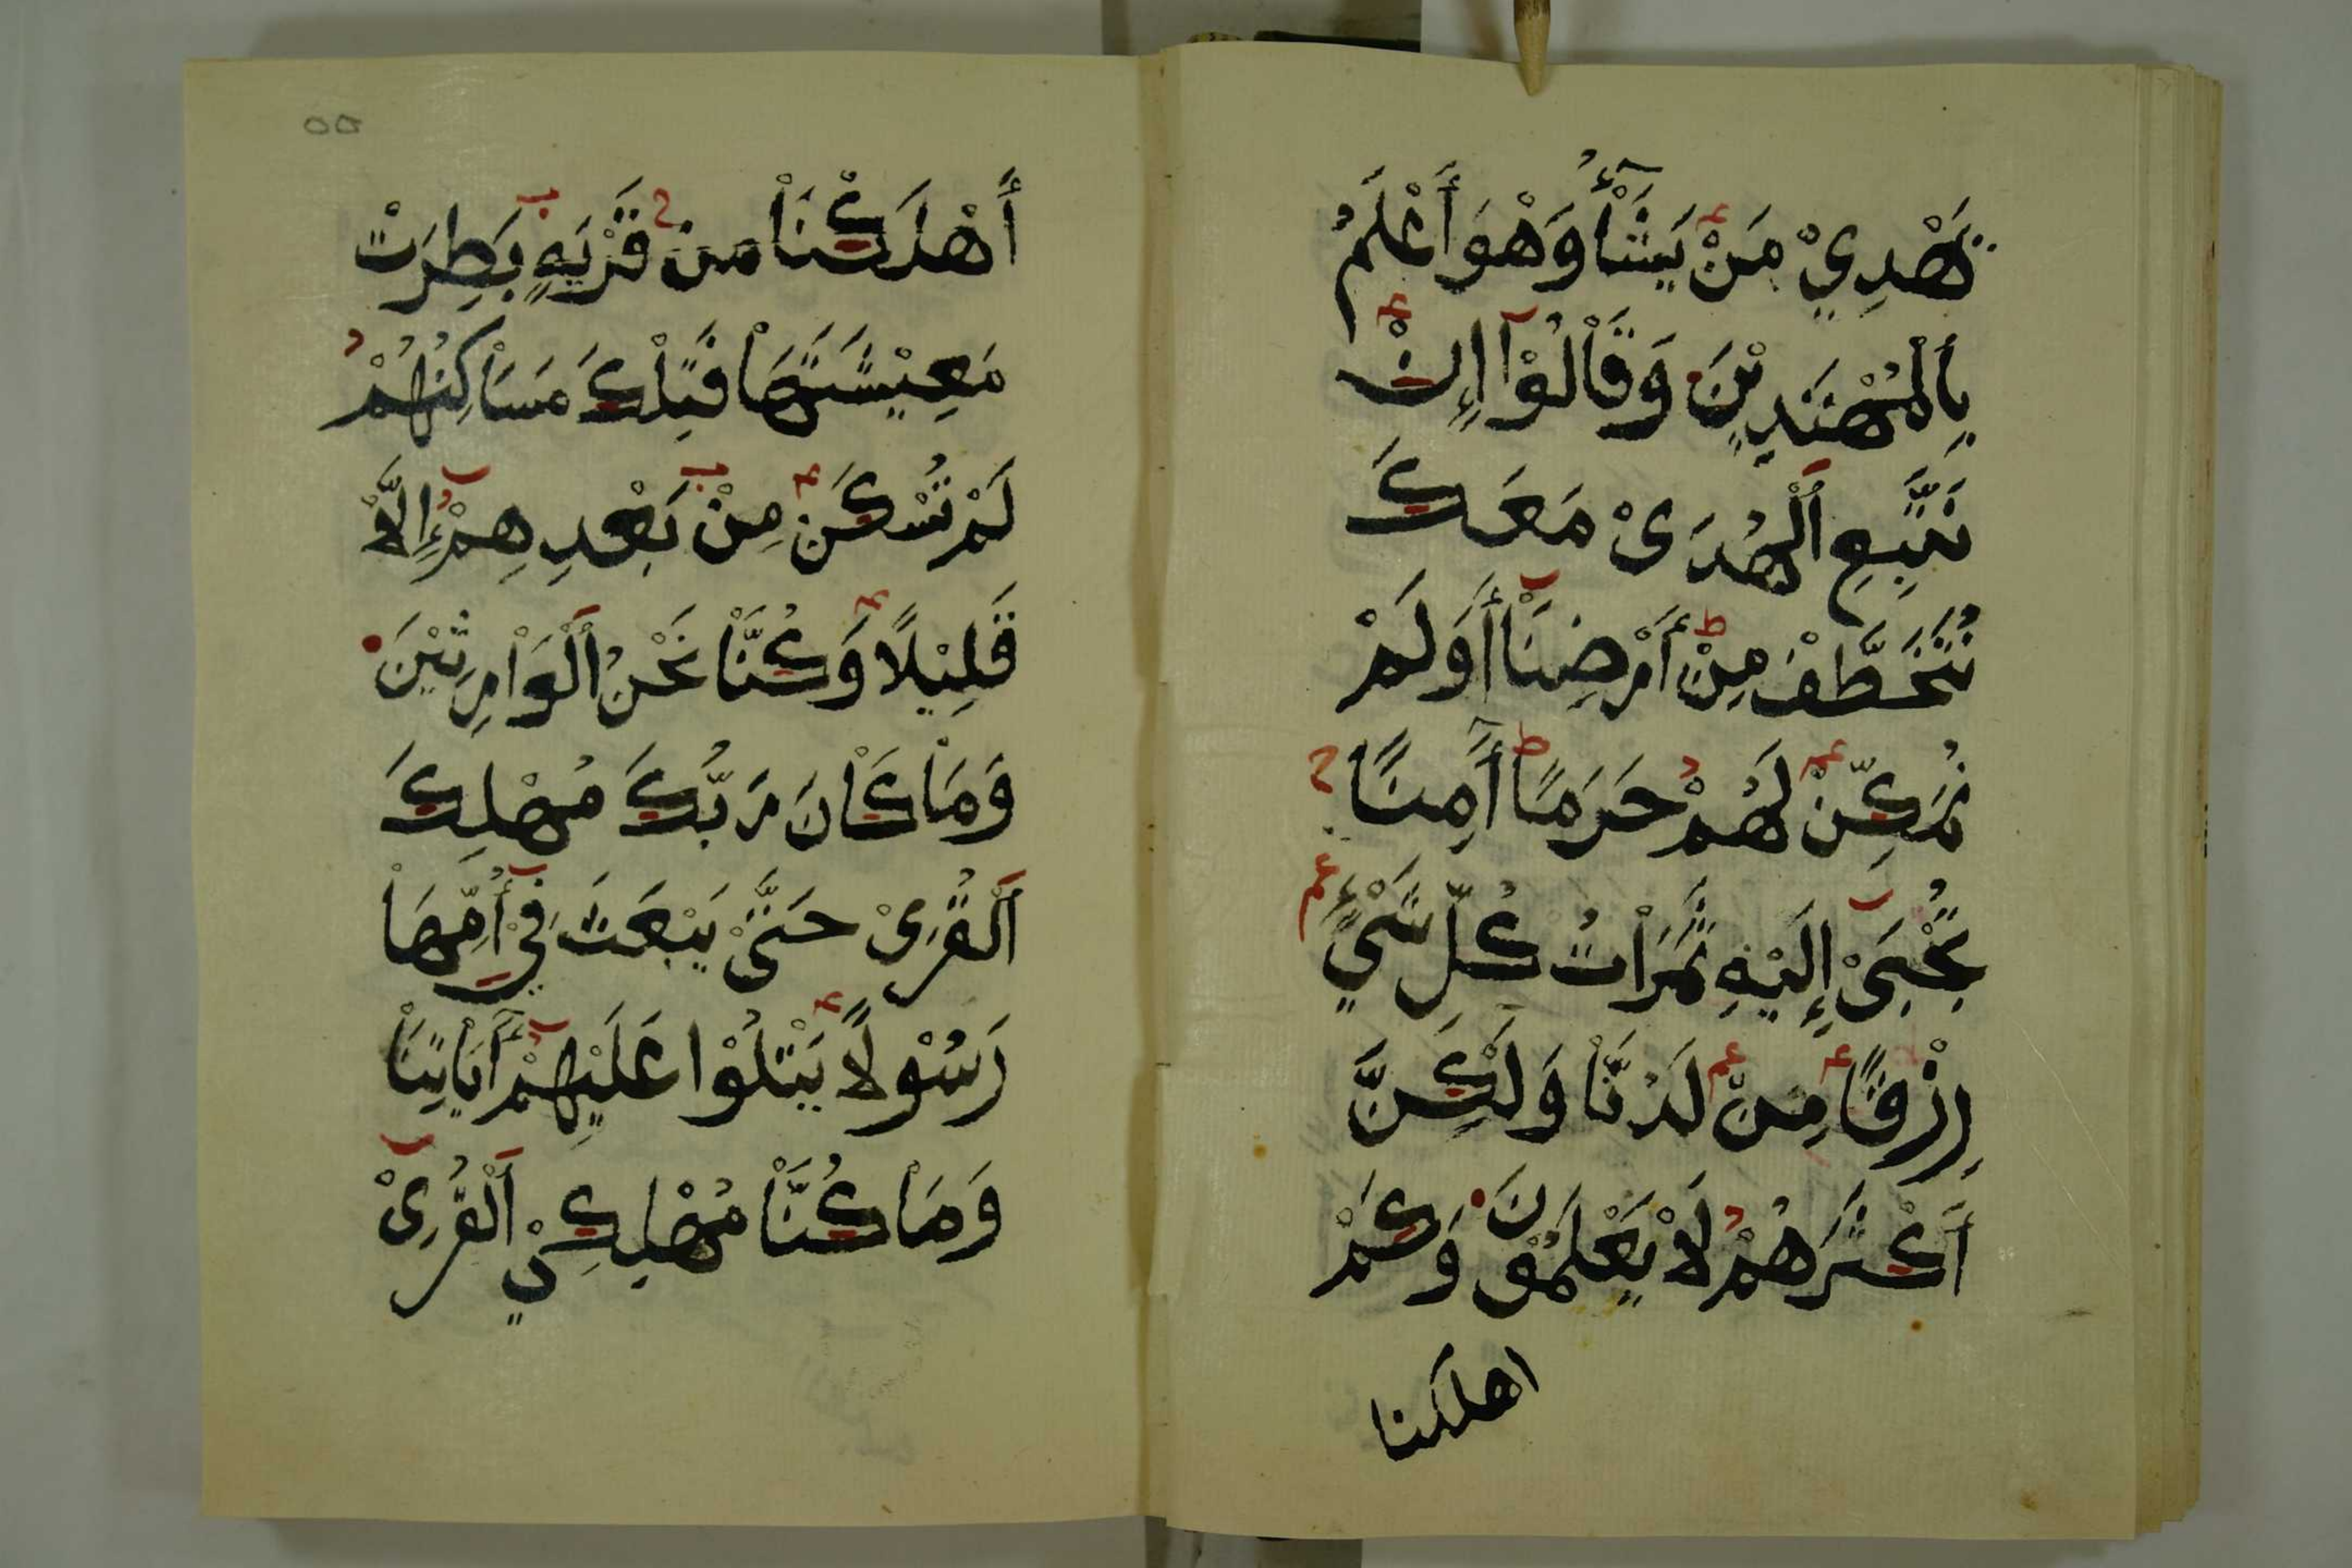 يَهْدِيْ مَنْ يَشَآْءُ وَهْوَ أَعْلَمُ
بِالْمُهْتَدِيْنَ وَقَاْلُوْٓا إِنْ
نَتَّبِعِ اَلْهُدَىْ مَعَكَ
نُتَخَطَّفْ مِنْ أَرْضِنَآْ أَوَلَمْ
نُمَكِّنْ لَهُمْ حَرَمًا أَٓمِنًا
تُجْبَىْ إِلَيْهِ ثَمَرَاْتُ كُلِّ شَيْءٍ
رِزْقًا مِنْ لَدُنَّاْ وَلَٰكِنَّ
أَكْثَرَهُمْ لَاْ يَعْلَمُوْنَ وَكَمْ
اهلكنا
٥٥
أَهْلَكْنَاْ مِنْ قَرْيَةٍ بَطِرَتْ
مَعِيْشَتَهَاْ فَتِلْكَ مَسَاْكِنُهُمْ
لَمْ تُسْكَنْ مِنْ بَعْدِهِمْ إِلَّاْ
قَلِيْلًا وَكُنَّاْ نَحْنُ اَلْوَاْرِثِيْنَ
وَمَاْ كَاْنَ رَبُّكَ مُهْلِكَ
اَلْقُرَىْ حَتَّىْ يَبْعَثَ فِيْ أُمِّهَاْ
رَسُوْلًا يَتْلُوْا عَلَيْهِمْ أَٓيَاْتِنَاْ
وَمَاْ كُنَّاْ مُهْلِكِيْ اَلْقُرَىْ